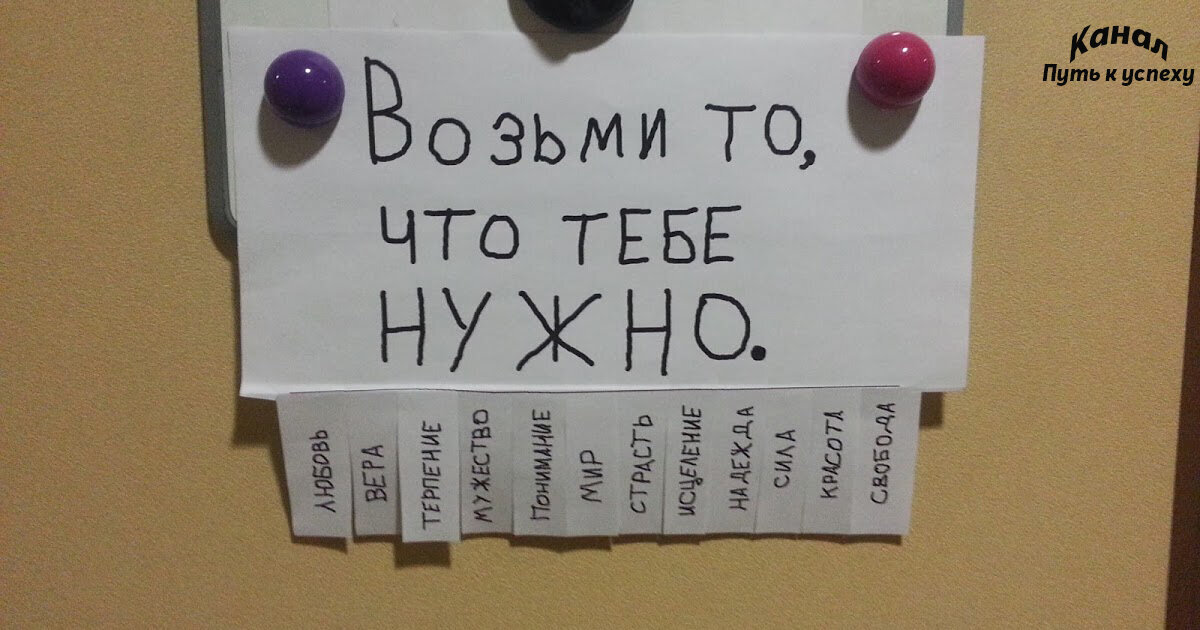 Канал
Путь к успеху
Возьми то,
что тебе
нужно.
ЛЮБОВЬ
ВЕРА
ТЕРПЕНИЕ
МУЖЕСТВО
ПОНИМАНИЕ
МИР
СТРАСТЬ
ИСЦЕЛЕНИЕ
НАДЕЖДА
СИЛА
КРАСОТА
СВОБОДА